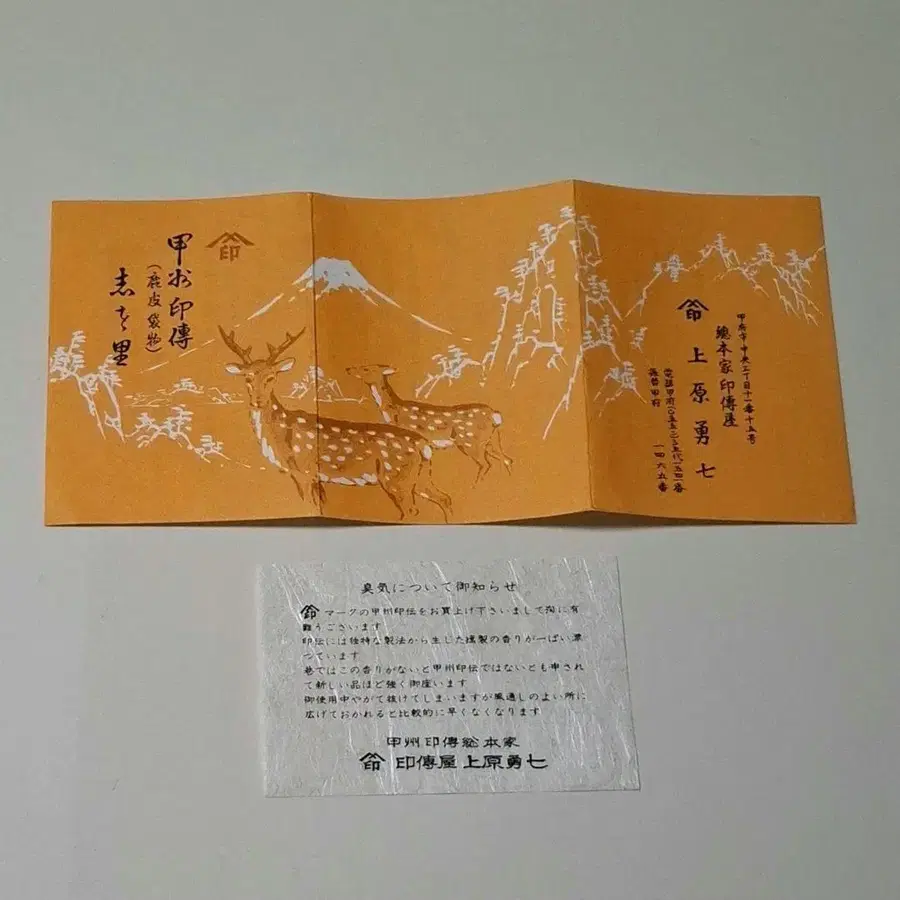 印
甲州印傳
(鹿皮袋物)
志を里
甲府市中央三丁目十一番十五号
總本家印傳屋
印 上原勇七
電話甲府
振替甲府 一四六五番
臭気について御知らせ
印マークの甲州印伝をお買上げ下さいまして洵に有
難うございます
印伝には独特な製法から生した燻製の香りが一ぱい漂
つています
巷ではこの香りがないと甲州印伝ではないとも申され
て新しい品ほど強く御座います
御使用中やがて抜けてしまいますが風通しのよい所に
広げておかれると比較的に早くなくなります
甲州印傳総本家
印 印傳屋上原勇七